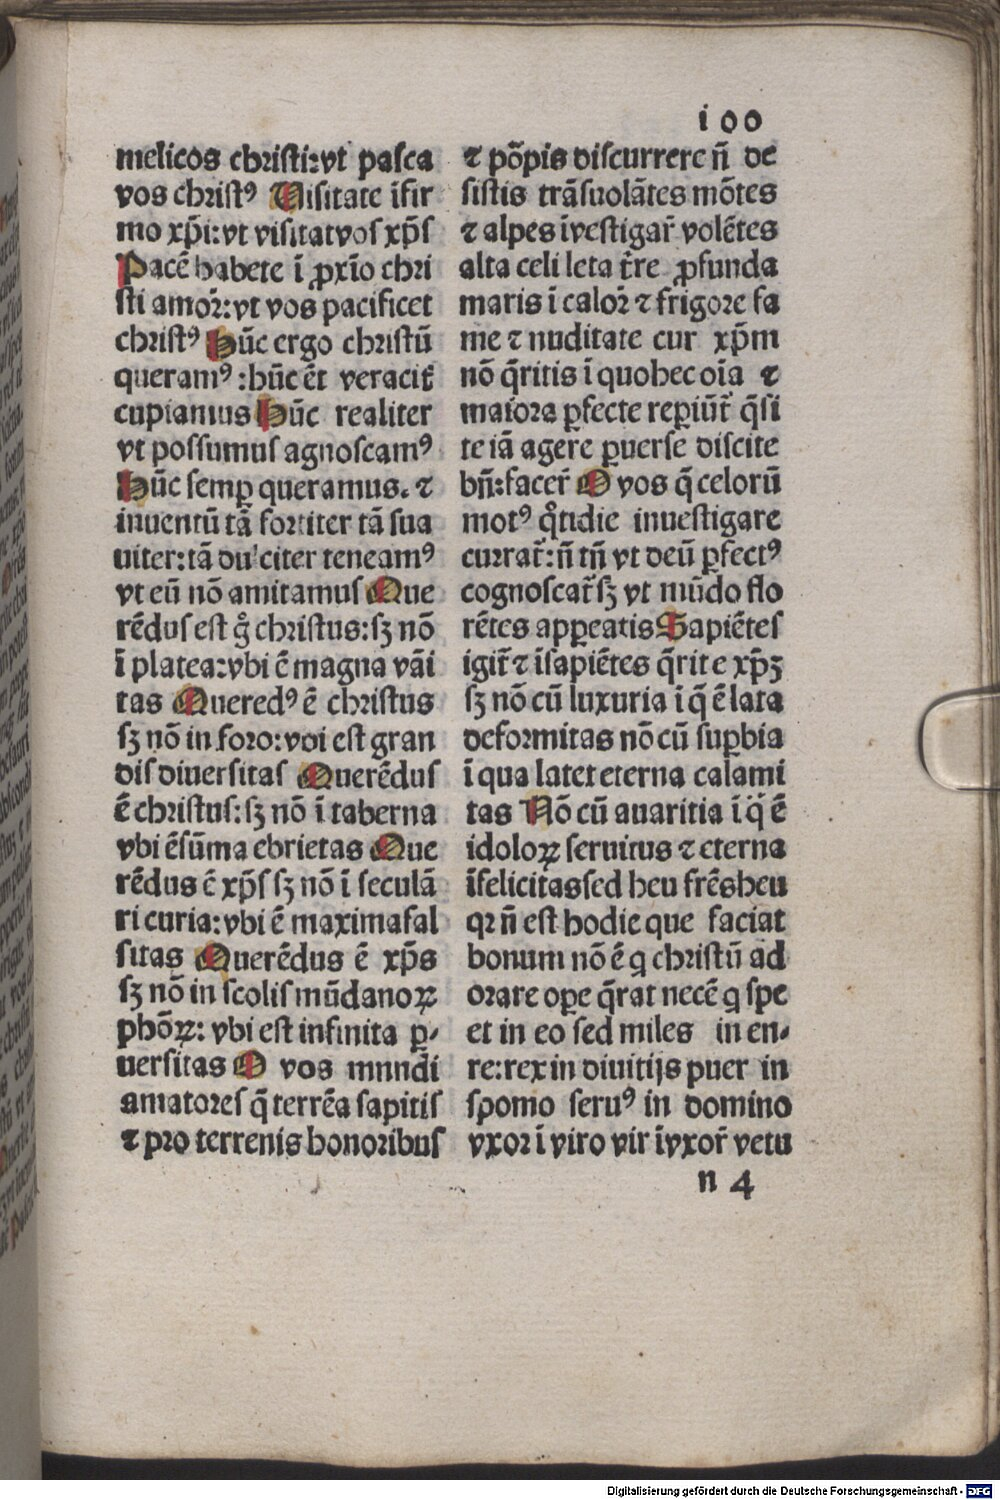 100
melicos christi:vt pasca
vos christꝰ Visitate ĩfir
mo xp̃i:vt visitatvos xp̃s
Pacẽ habete ĩ ꝓxĩo chri
sti amor̃:vt vos pacificet
christꝰ Hũc ergo christũ
queramꝰ :hũc ẽt veracit̃
cupiamus Hũc realiter
vt possumus agnoscamꝰ
Hũc semꝑ queramus. ⁊
inuentũ tã fortiter tã sua
uiter:tã dulciter teneamꝰ
vt eũ nõ amitamus Que
rẽdus est g̊ christus:sꝫ nõ
ĩ platea:vbi ẽ magna vãi
tas Queredꝰ ẽ christus
sꝫ nõ in foro:vbi est gran
dis diuersitas Querẽdus
ẽ christus:sꝫ nõ ĩ taberna
vbi ẽsũma ebrietas Que
rẽdus ẽ xp̃s sꝫ nõ ĩ seculã
ri curia:vbi ẽ maximafal
sitas Querẽdus ẽ xp̃s
sꝫ nõ in scolis mũdanoꝝ
phõꝝ: vbi est infinita ꝑ-
uersitas O vos mnndi
amatores q̃ terrẽa sapitis
⁊ pro terrenis honoribus
⁊ põpis discurrere ñ de
sistis trãsuolãtes mõtes
⁊ alpes ĩvestigar̃ volẽtes
alta celi leta t̃re ꝓfunda
maris ĩ calor̃ ⁊ frigore fa
me ⁊ nuditate cur xp̃m
nõ q̃ritis ĩ quohec oĩa ⁊
maiora ꝑfecte reꝑiũt̃ q̃si
te iã agere ꝑuerse discite
bñ:facer̃ O vos q̃ celorũ
motꝰ q̊tidie inuestigare
currat̃:ñ tñ vt deũ ꝑfectꝰ
cognoscat̃ sꝫ vt mũdo flo
rẽtes apꝑeatis Sapiẽtes
igit̃ ⁊ ĩsapiẽtes q̃rite xp̃ꝫ
sꝫ nõ cũ luxuria ĩ q̃ ẽ lata
deformitas nõ cũ suꝑbia
ĩ qua latet eterna calami
tas Nõ cũ auaritia ĩ q̃ ẽ
idoloꝝ seruitus ⁊ eterna
ĩfelicitassed heu frẽsheu
qꝛ ñ est hodie que faciat
bonum nõ ẽ ꝗ christũ ad
orare oꝑe q̃rat necẽ ꝗ spe
et in eo sed miles in en-
re:rex in diuitijs puer in
spomo seruꝰ in domino
vxor ĩ viro vir ĩvxor̃ vetu
n 4
Digitalisierung gefördert durch die Deutsche Forschungsgemeinschaft - DFG